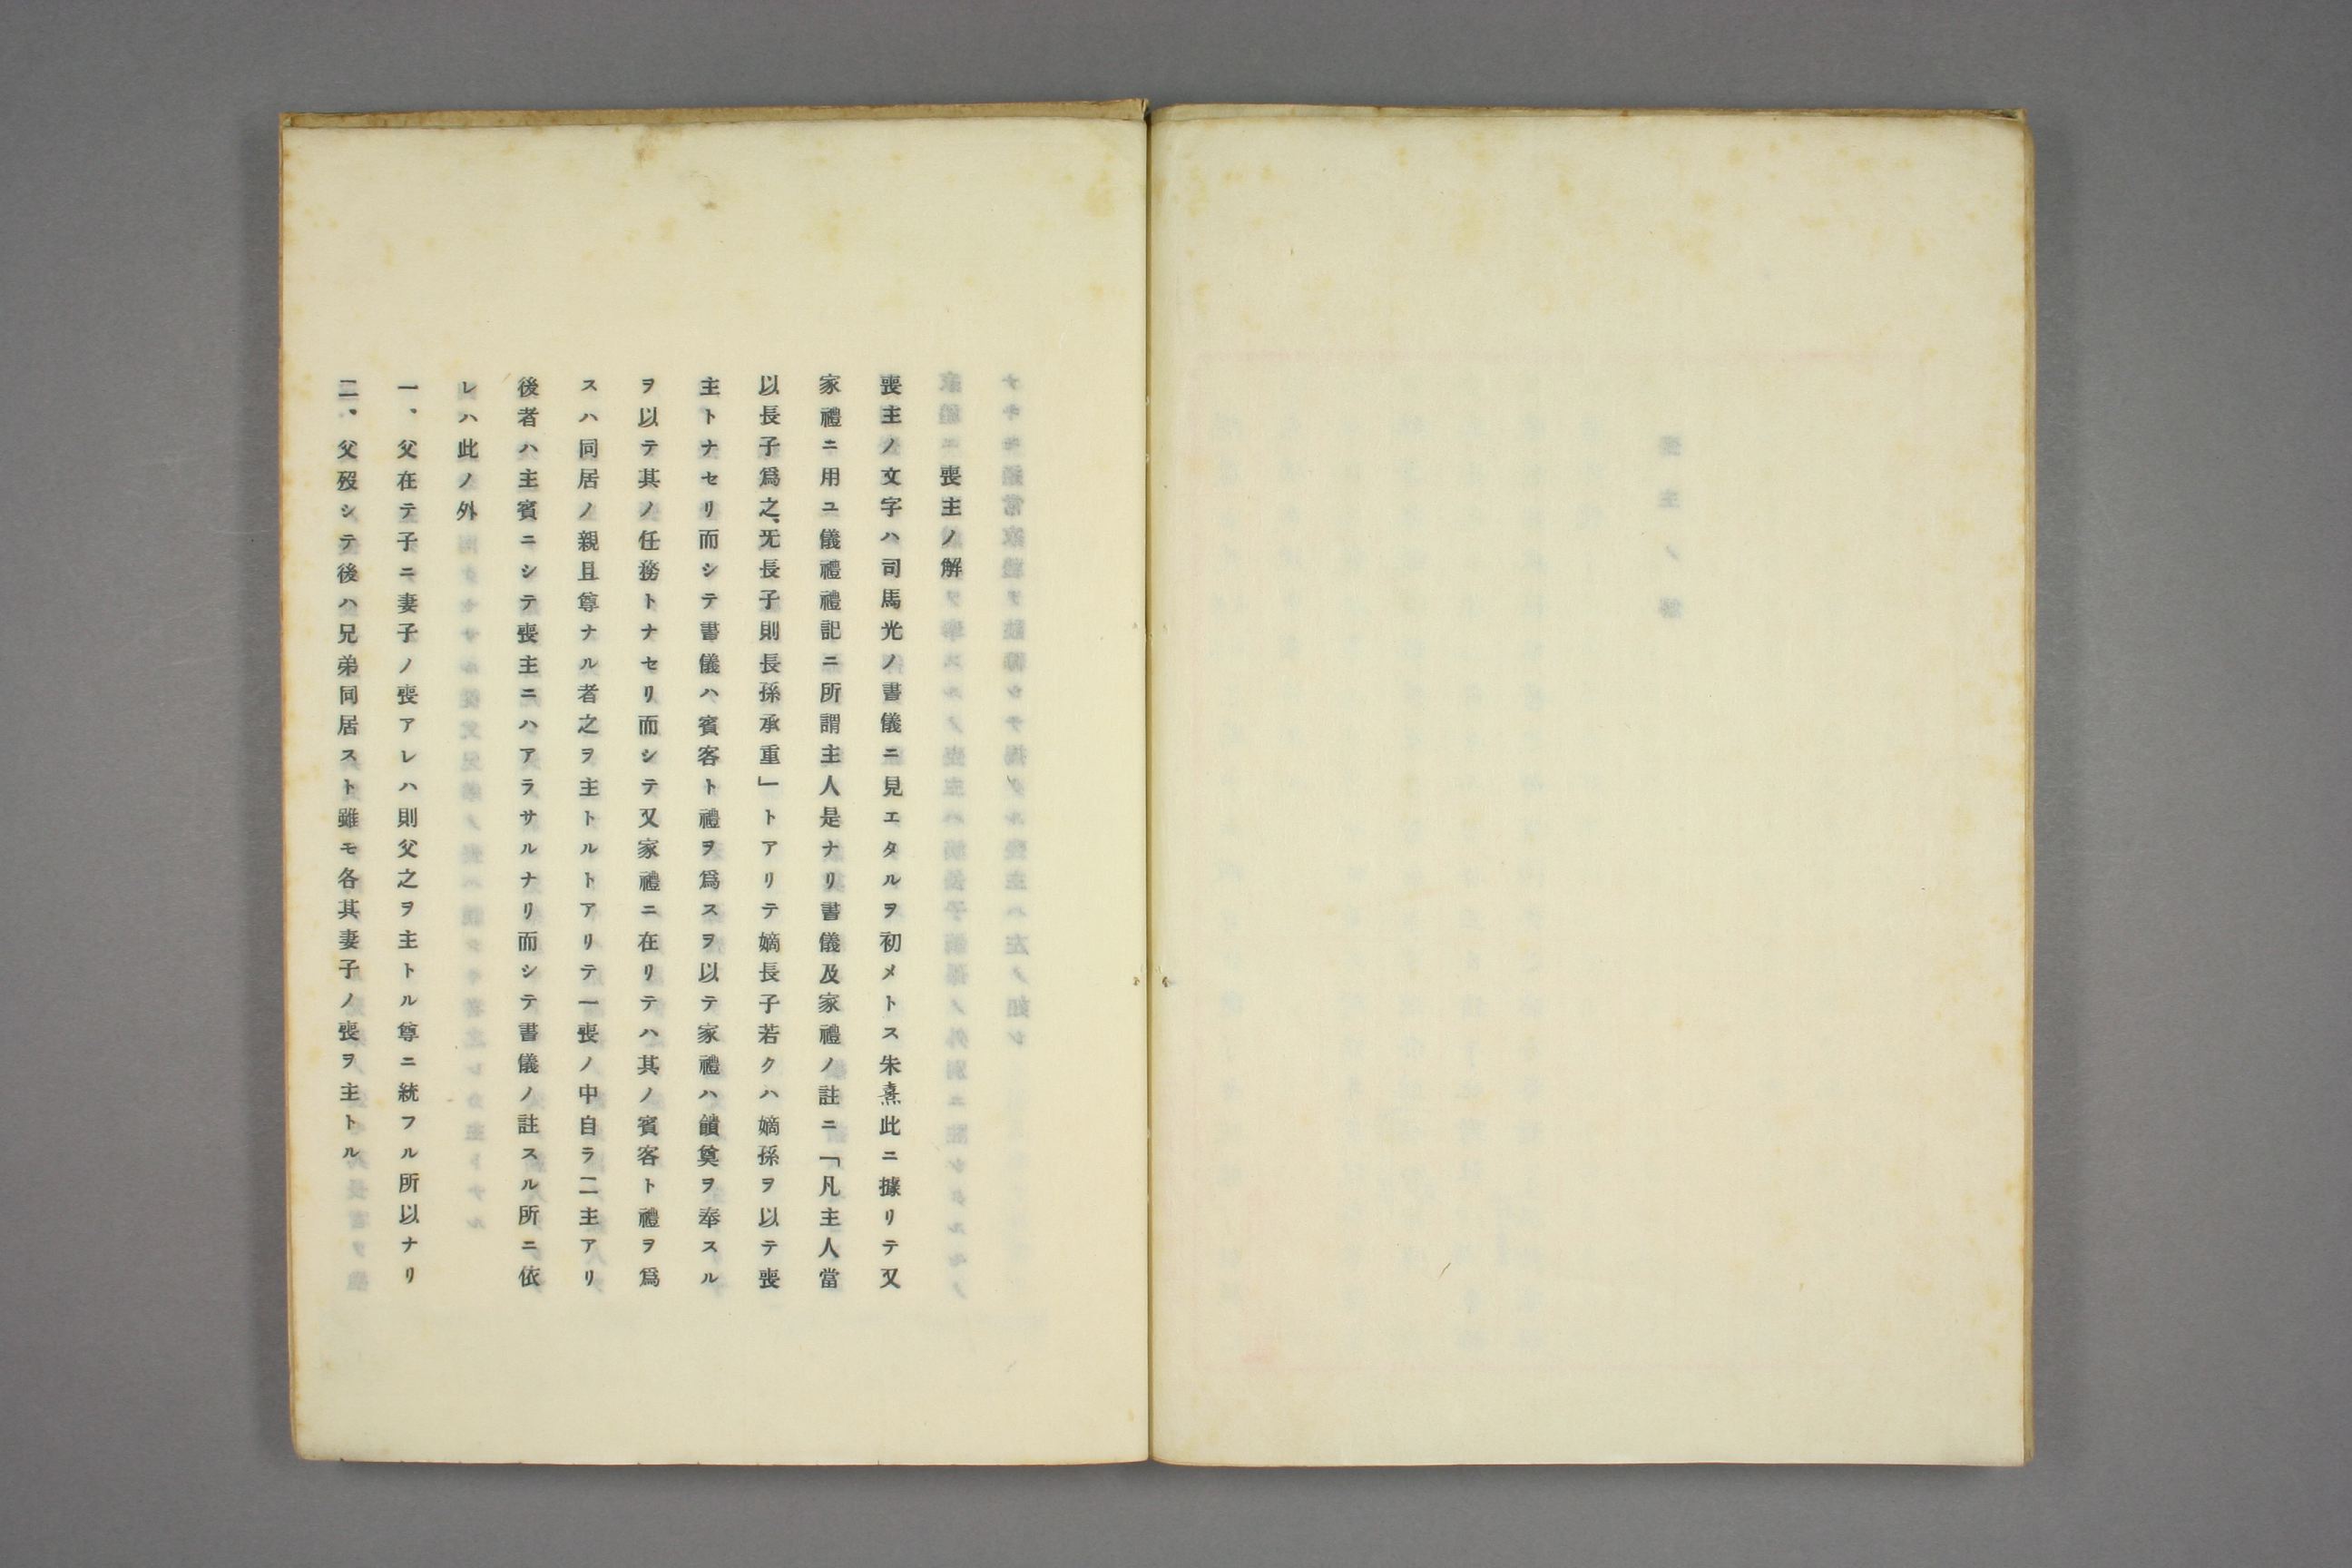 喪主ノ解
喪主ノ文字ハ司馬光ノ書儀ニ見エタルヲ初メトス朱熹此ニ據リテ又
家禮ニ用ユ儀禮禮記ニ所謂主人是ナリ書儀及家禮ノ註ニ「凡主人當
以長子爲之、旡長子則長孫承重」トアリテ嫡長子若クハ嫡孫ヲ以テ喪
主トナセリ而シテ書儀ハ賓客ト禮ヲ爲スヲ以テ家禮ハ饋奠ヲ奉スル
ヲ以テ其ノ任務トナセリ而シテ又家禮ニ在リテハ其ノ賓客ト禮ヲ爲
スハ同居ノ親且尊ナル者之ヲ主トルトアリテ一喪ノ中自ラ二主アリ
後者ハ主賓ニシテ喪主ニハアラサルナリ而シテ書儀ノ註スル所ニ依
レハ此ノ外
一、父在テ子ニ妻子ノ喪アレハ則父之ヲ主トル尊ニ統フル所以ナリ
二、父歿シテ後ハ兄弟同居スト雖モ各其妻子ノ喪ヲ主トル